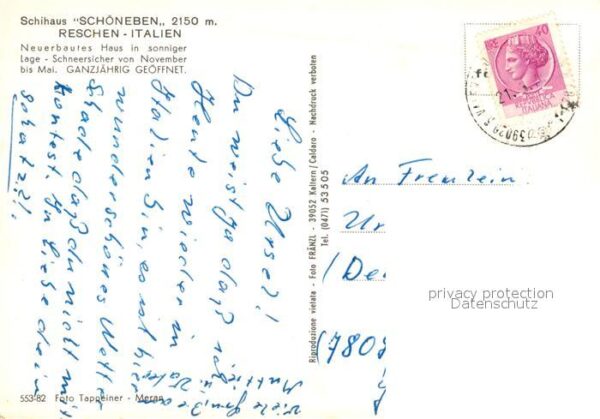 Schihaus "SCHÖNEBEN„ 2150 m.
RESCHEN - ITALIEN
Neuerbautes Haus in sonniger
Lage - Schneersicher von November
bis Mai. GANZJÄHRIG GEÖFFNET.
Liebe Ursel!
Du weist ja daß
Heute wieder in
Italien bin, es ist hier
wunderschönes Wetter
Schade daß du nicht mit
konntest. In Liebe dein
Schatz!
Viele Grüße an
Mutti u. Vater
553-82 Foto Tappeiner - Meran
Riproduzione vietata - Foto FRÄNZL - 39052 Kaltern/Caldaro - Nachdruck verboten
Tel. (0471) 53505
40
REPUBBLICA
ITALIANA
39029
An Freulein
Ur
(De
(780
privacy protection
Datenschutz